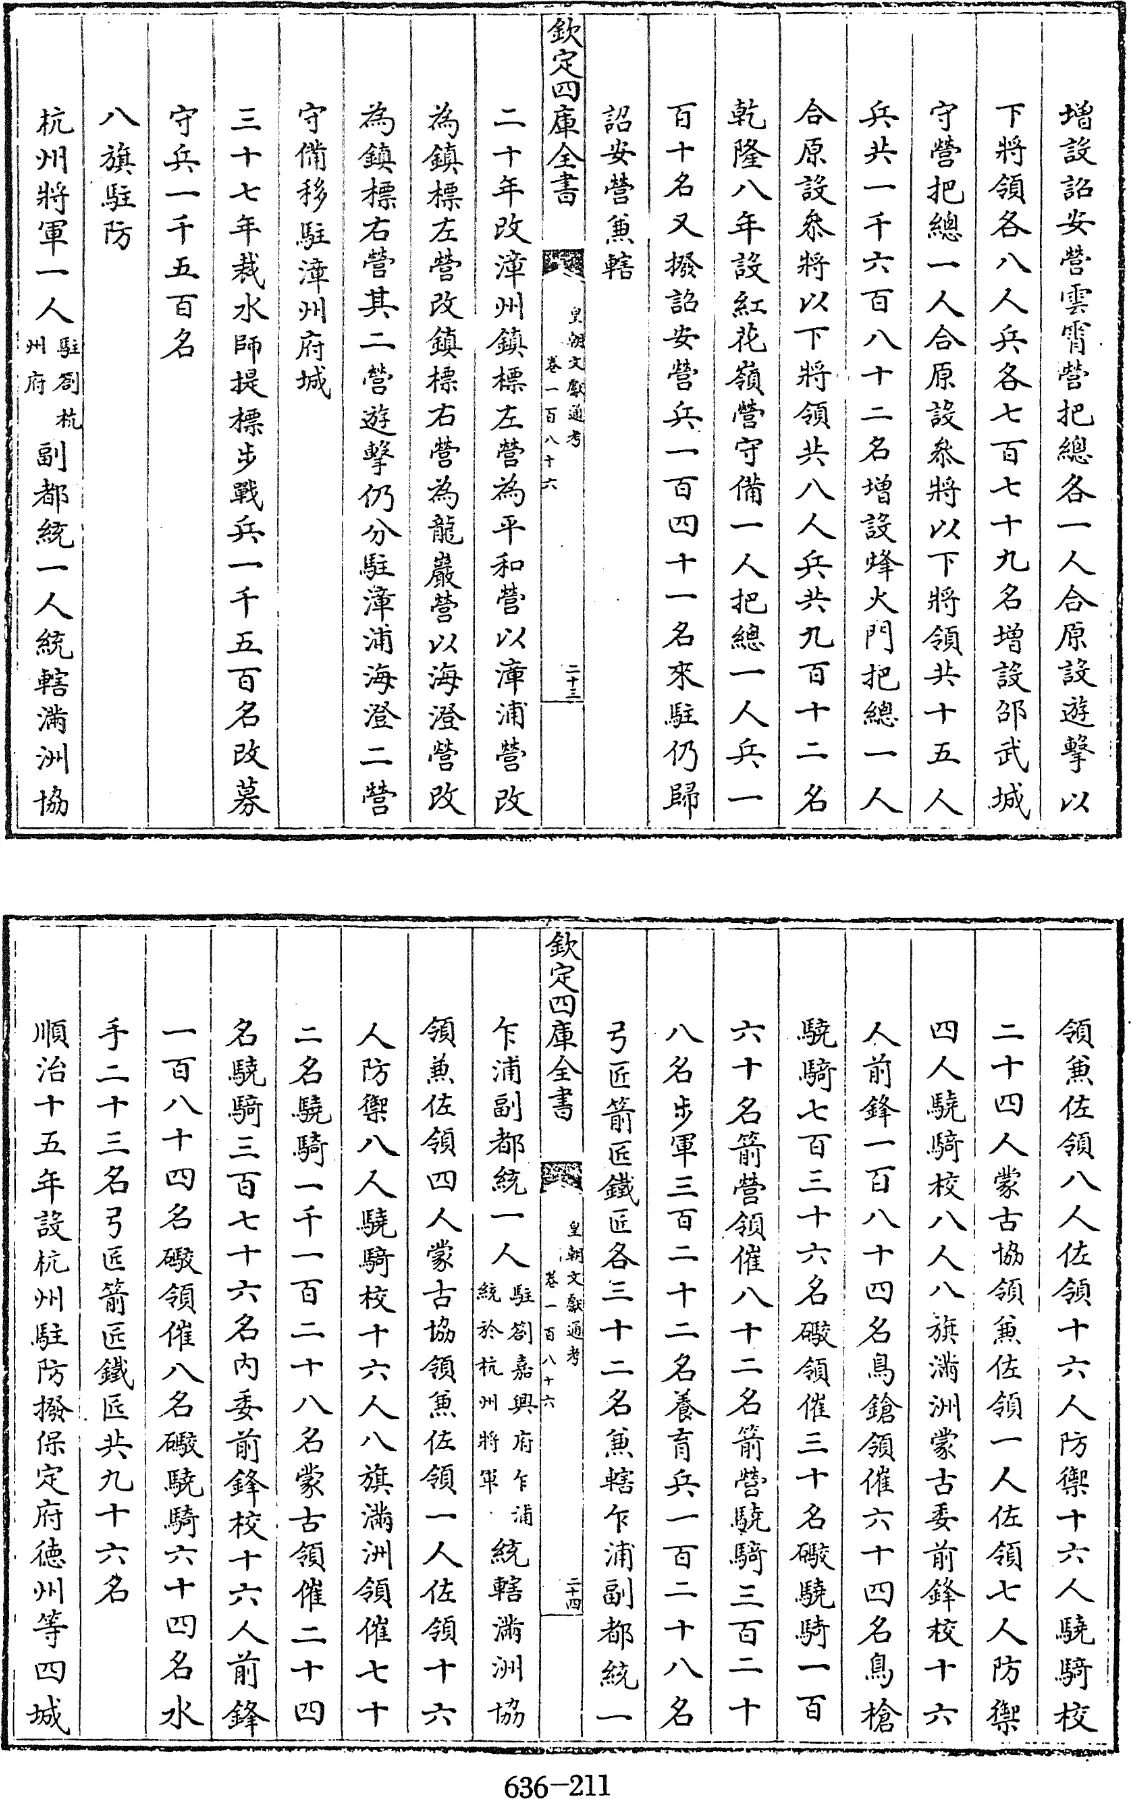 增設詔安營雲霄營把總各一人合原設遊擊以
下將領各八人兵各七百七十九名增設邵武城
守營把總一人合原設叅將以下將領共十五人
兵共一千六百八十二名增設烽火門把總一人
合原設叅將以下將領共八人兵共九百十二名
乾隆八年設紅花嶺營守備一人把總一人兵一
百十名又撥詔安營兵一百四十一名來駐仍歸
詔安營兼轄
欽定四庫全書
皇朝文獻通考
卷一百八十六
二十三
二十年改漳州鎮標左營為平和營以漳浦營改
為鎮標左營改鎮標右營為龍巖營以海澄營改
為鎮標右營其二營遊擊仍分駐漳浦海澄二營
守備移駐漳州府城
三十七年裁水師提標步戰兵一千五百名改募
守兵一千五百名
八旗駐防
杭州將軍一人駐劄杭州府副都統一人統轄滿洲協
領兼佐領八人佐領十六人防禦十六人驍騎校
二十四人蒙古協領兼佐領一人佐領七人防禦
四人驍騎校八人八旗滿洲蒙古委前鋒校十六
人前鋒一百八十四名鳥鎗領催六十四名鳥槍
驍騎七百三十六名礮領催三十名礮驍騎一百
六十名箭營領催八十二名箭營驍騎三百二十
八名步軍三百二十二名養育兵一百二十八名
弓匠箭匠鐵匠各三十二名兼轄乍浦副都統一
欽定四庫全書
皇朝文獻通考
卷一百八十六
二十四
乍浦副都統一人駐劄嘉興府乍浦統於杭州將軍統轄滿洲協
領兼佐領四人蒙古協領兼佐領一人佐領十六
人防禦八人驍騎校十六人八旗滿洲領催七十
二名驍騎一千一百二十八名蒙古領催二十四
名驍騎三百七十六名內委前鋒校十六人前鋒
一百八十四名礮領催八名礮驍騎六十四名水
手二十三名弓匠箭匠鐵匠共九十六名
順治十五年設杭州駐防撥保定府德州等四城
636-211